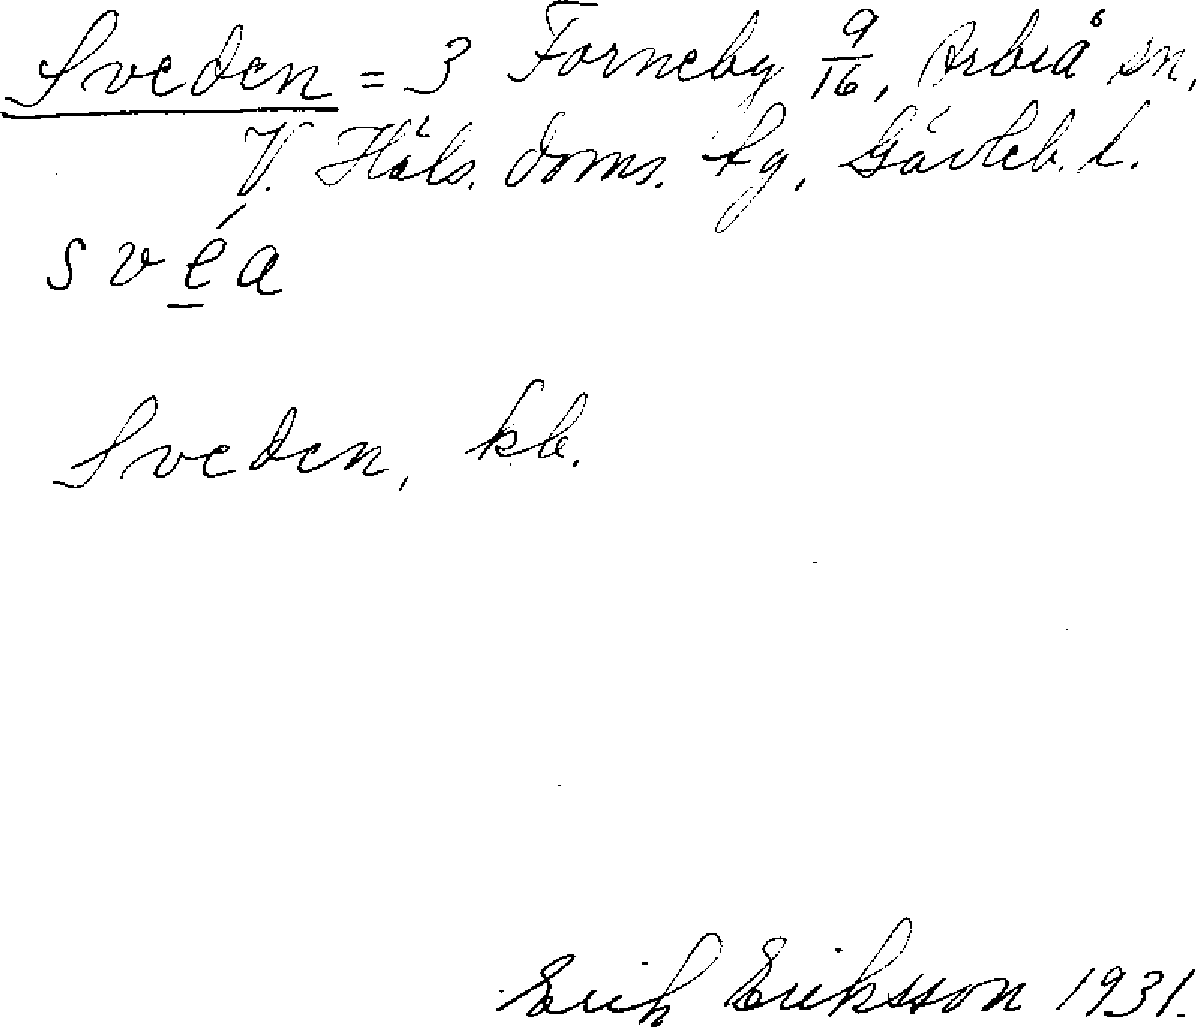 Sveden = 3 Forneby 9/16, Arbrå sn,
V. Häls. doms. hg, Gävleb. l.
svéa
Sveden, kb.
Erik Eriksson 1931.